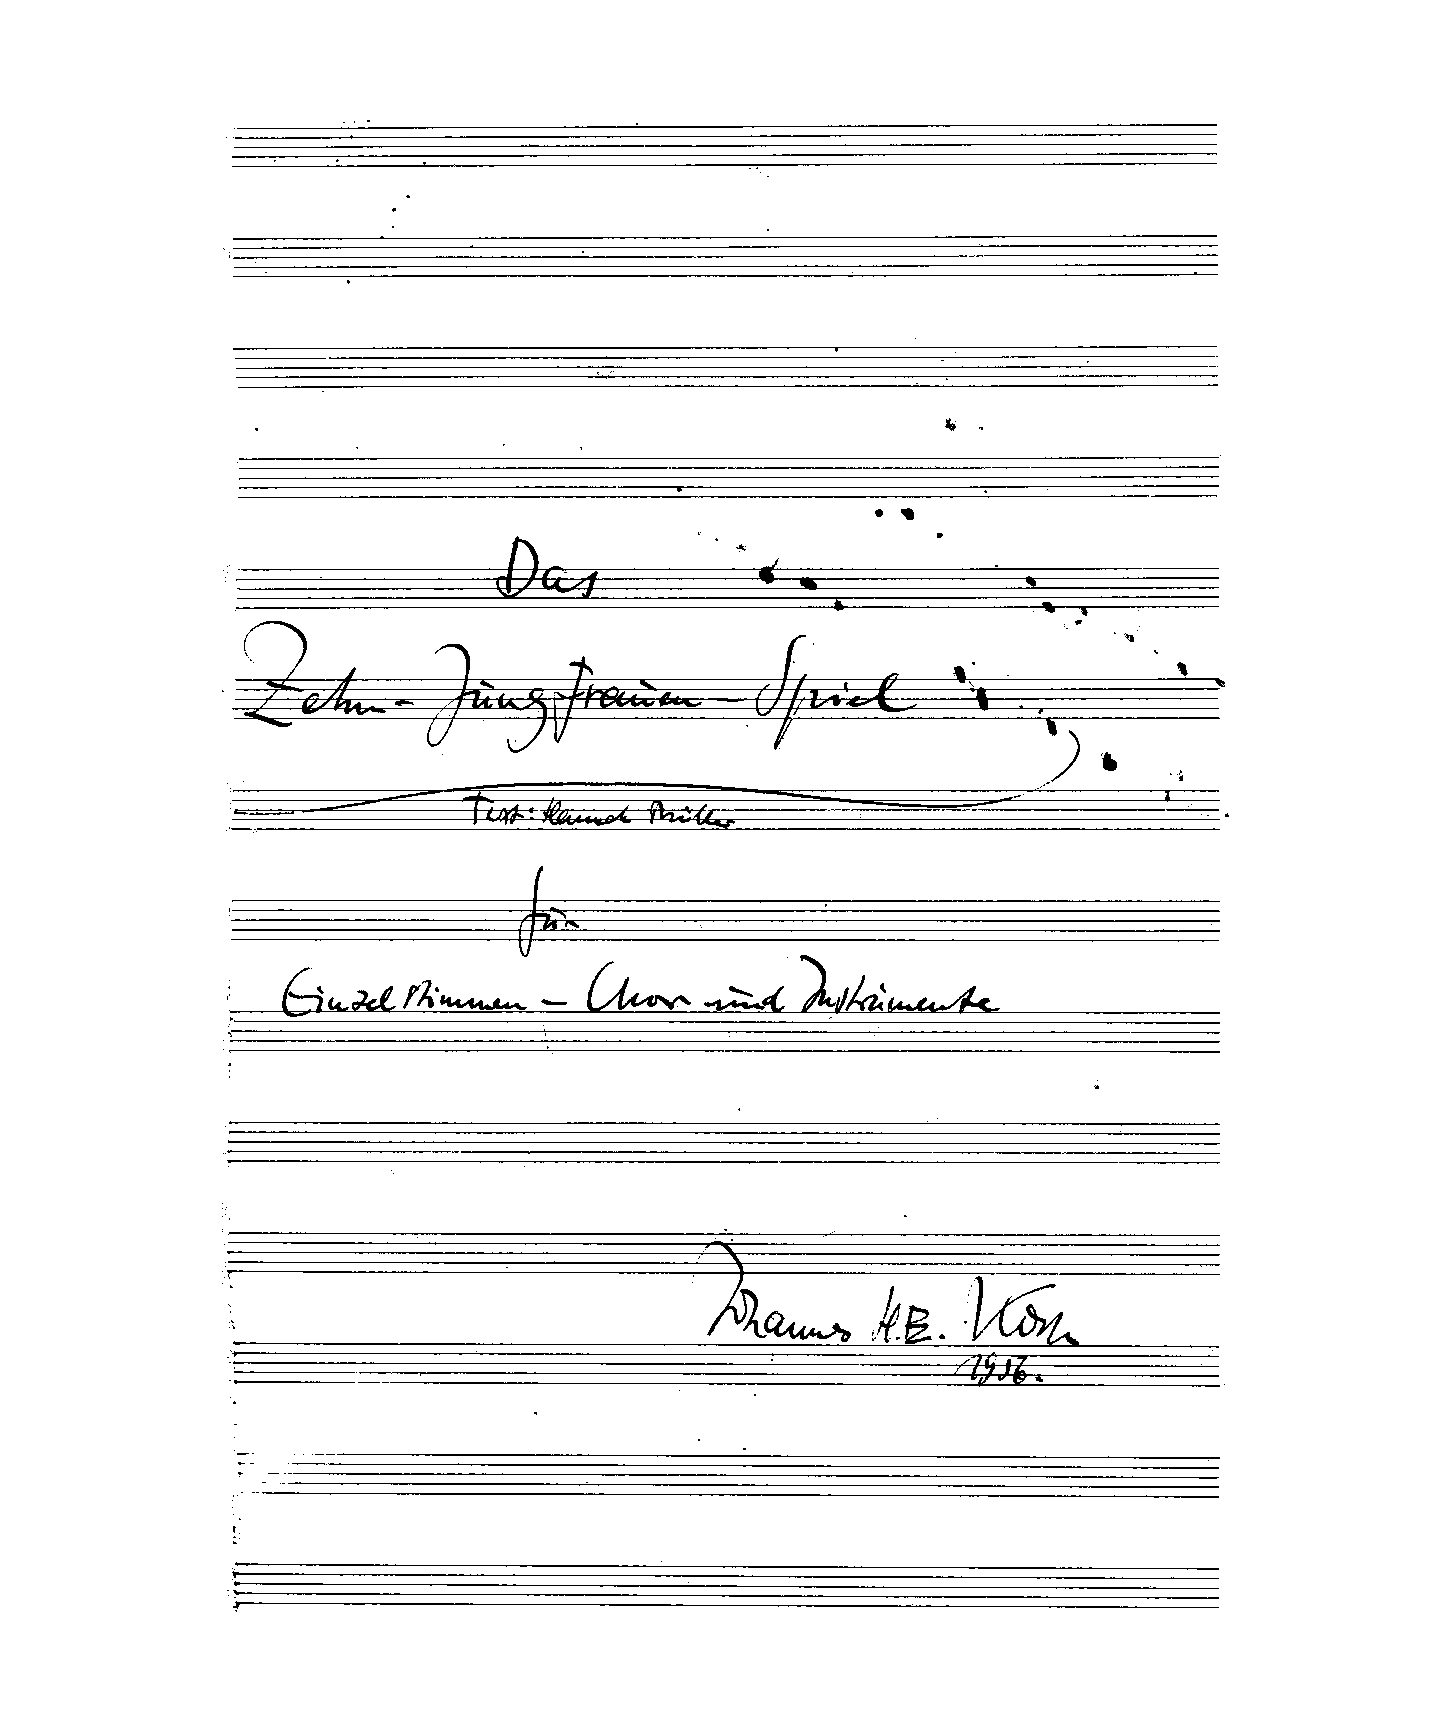 Das
Zehn-Jungfrauen-Spiel
Text:
für
Einzelstimmen - Chor und Instrumente
Johannes H.E. Koch
1956.